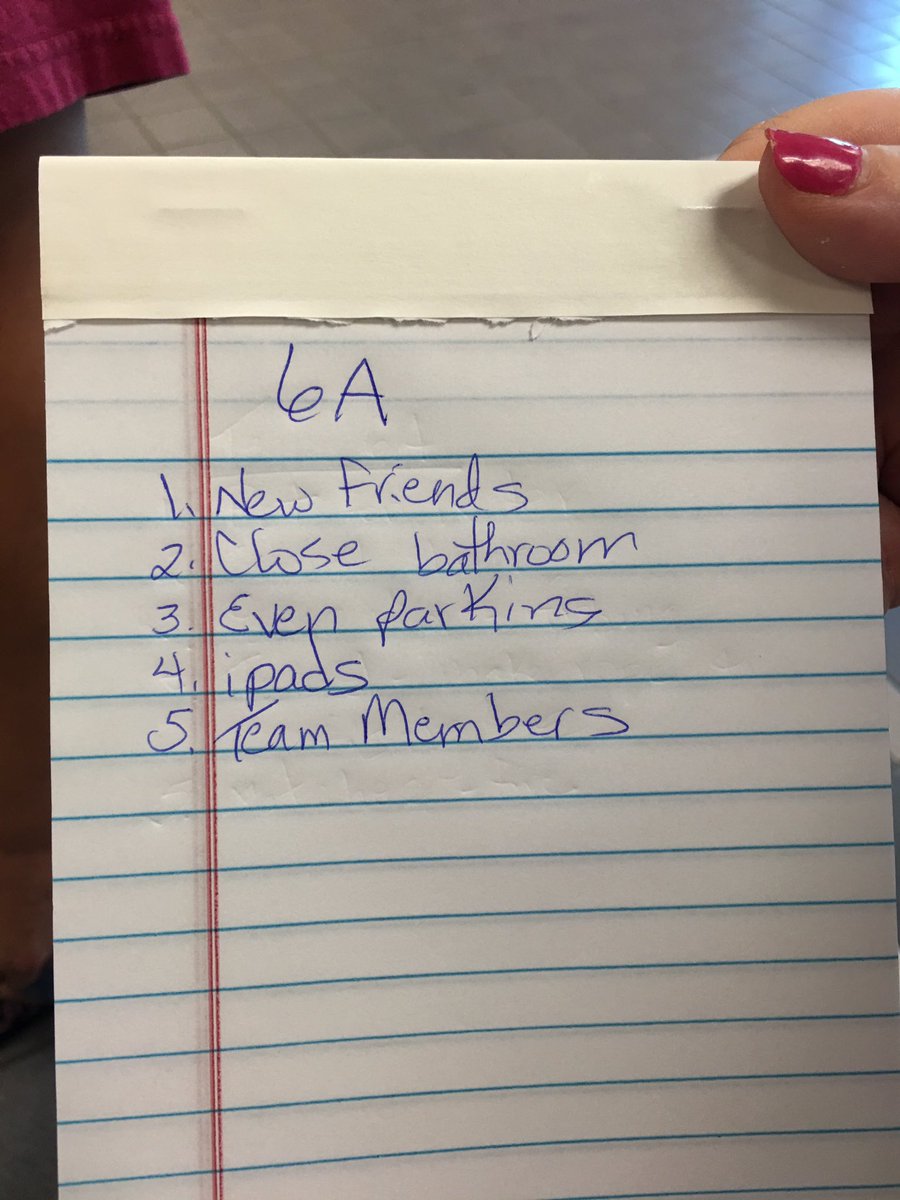 6A
1. New Friends
2. Close bathroom
3. Even parking
4. ipads
5. Team Members